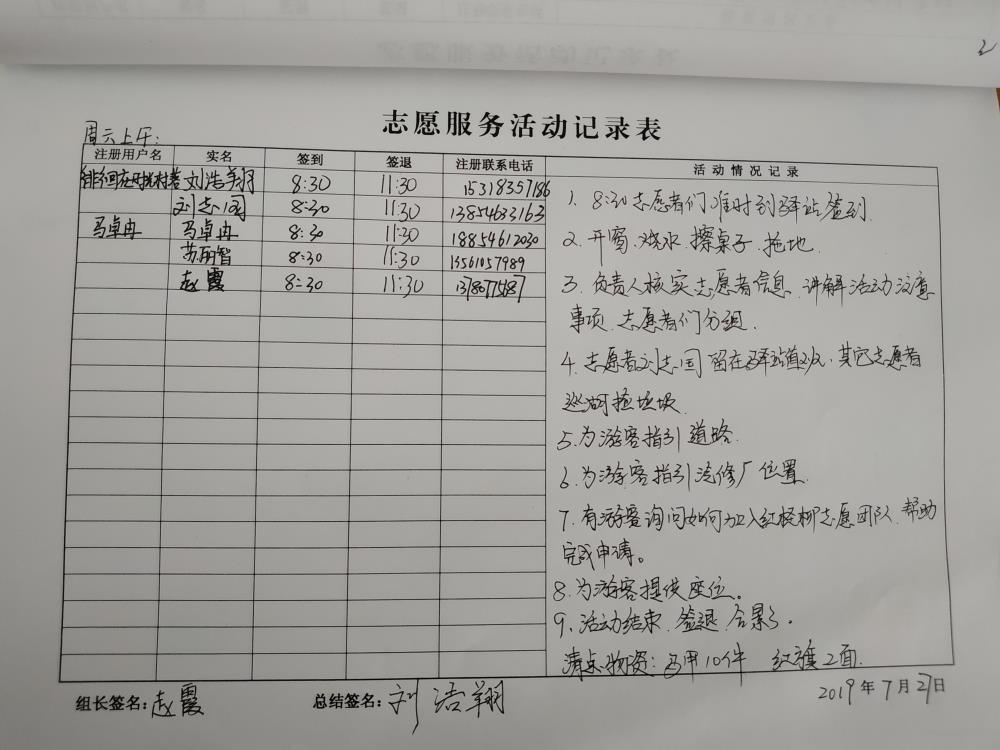 志愿服务活动记录表
周六上午:
注册用户名 实名 签到 签退 注册联系电话 活动情况记录
刘浩翔 8:30 11:30 15318357186
刘志国 8:30 11:30 13854633163
马卓冉 马卓冉 8:30 11:30 18854612030
苏丽智 8:30 11:30 13561057989
赵霞 8:30 11:30
1. 8:30志愿者们准时到驿站签到.
2. 开窗、烧水、擦桌子、拖地.
3. 负责人核实志愿者信息、讲解活动注意
事项、志愿者们分组.
4. 志愿者刘志国留在驿站值班、其它志愿者
巡湖捡垃圾.
5. 为游客指引道路.
6. 为游客指引汽修厂位置.
7. 有游客询问如何加入红柽柳志愿团队、帮助
完成申请。
8. 为游客提供座位。
9. 活动结束、签退、合影。
清点物资: 马甲10件 红旗2面.
组长签名: 赵霞 总结签名: 刘浩翔 2019年7月27日